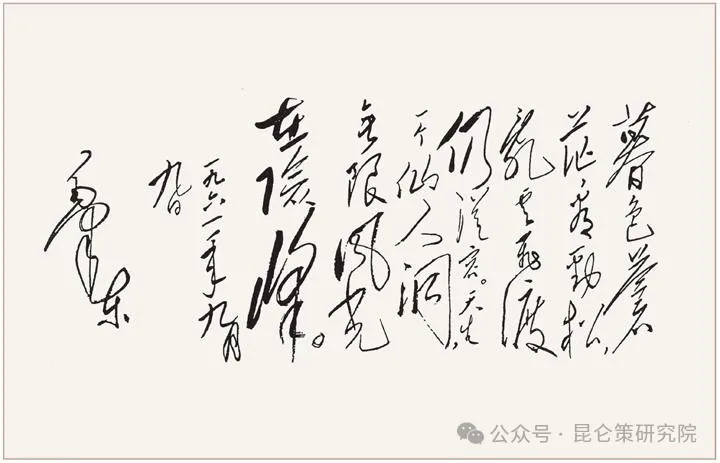 暮色蒼
茫看勁松,
亂云飛渡
仍從容。天生
一个仙人洞
無限風光
在險峰。
一九六一年九月
九日
毛泽东
公众号 · 昆仑策研究院